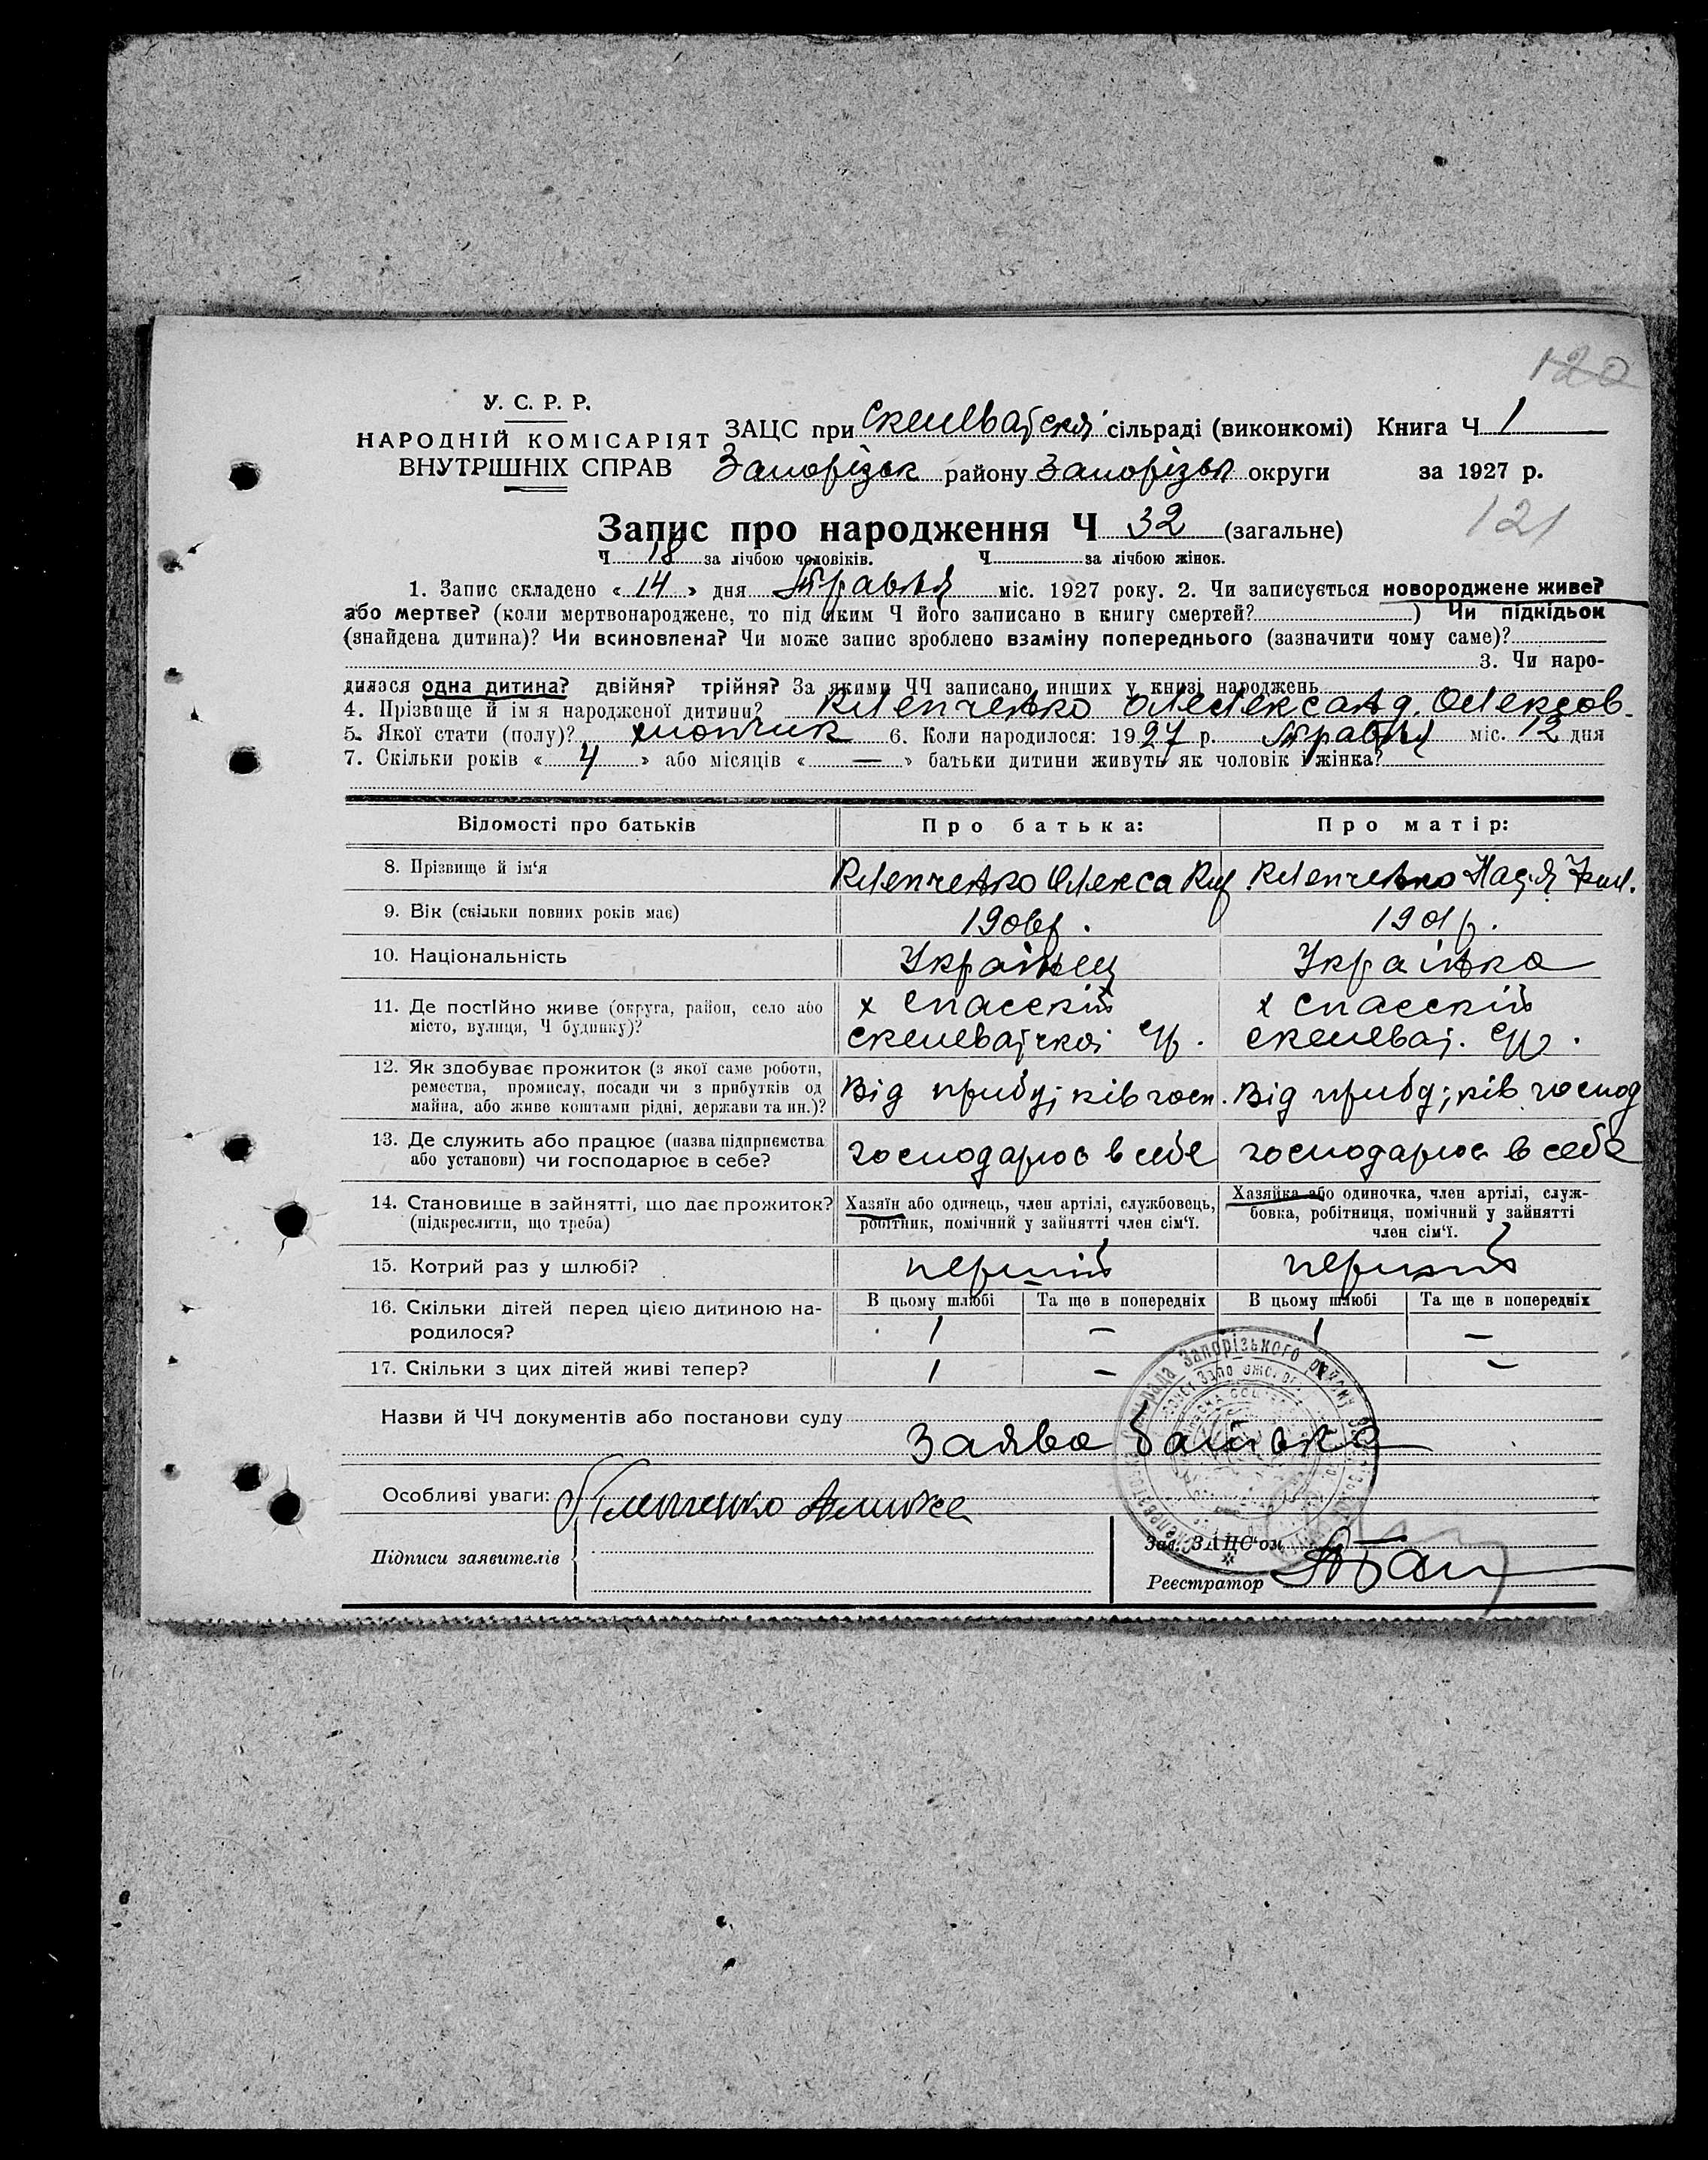 120
У. С. Р. Р.
НАРОДНІЙ КОМІСАРІЯТ
ВНУТРІШНІХ СПРАВ
ЗАЦС при Скелеватской сільраді (виконкомі) Книга Ч 1
Запорізьк району Запорізьк округи за 1927 р.
121
Запис про народження Ч 32 (загальне)
Ч 18 за лічбою чоловіків. Ч за лічбою жінок.
1. Запис складено « 14 » дня травня міс. 1927 року. 2. Чи записується новороджене живе?
або мертве? (коли мертвонароджене, то під яким Ч його записано в книгу смертей? ) Чи підкідьок
(знайдена дитина)? Чи всиновлена? Чи може запис зроблено взаміну попереднього (зазначити чому саме)?
3. Чи наро-
дилася одна дитина? двійня? трійня? За якими ЧЧ записано инших у книзі народжень
4. Прізвище й ім'я народженої дитини? Клепченко Олександ. Олексов.
5. Якої стати (полу)? хлопчик 6. Коли народилося: 1927 р. травня міс. 12 дня
7. Скільки років « 4 » або місяців « — » батьки дитини живуть як чоловік і жінка?
Відомості про батьків Про батька: Про матір:
8. Прізвище й ім'я Клепченко Олекса Клепченко Надя
9. Вік (скільки повних років має) 1901 р.
10. Національність Українец Українка
11. Де постійно живе (округа, район, село або х Спасский х Спасский
місто, вулиця, Ч будинку)? Скелеватської с/р. Скелеват. с/р.
12. Як здобуває прожиток (з якої саме роботи,
ремества, промислу, посади чи з прибутків од Від прибутків госп. Від прибутків господ
майна, або живе коштами рідні, держави та ин.)?
13. Де служить або працює (назва підприємства
або установи) чи господарює в себе? господарює в себе господарює в себе
14. Становище в зайнятті, що дає прожиток? Хазяїн або одинець, член артілі, службовець, Хазяйка або одиночка, член артілі, служ-
(підкреслити, що треба) робітник, помічний у зайнятті член сім'ї. бовка, робітниця, помічний у зайнятті
член сім'ї.
15. Котрий раз у шлюбі? перший перший
16. Скільки дітей перед цією дитиною на- В цьому шлюбі Та ще в попередніх В цьому шлюбі Та ще в попередніх
родилося? 1 — 1 —
17. Скільки з цих дітей живі тепер? 1 — 1 —
Назви й ЧЧ документів або постанови суду
Заява батька
Особливі уваги: Клепченко
Підписи заявителів
Зав. ЗАЦС'ом
Реестратор
Запорізького району